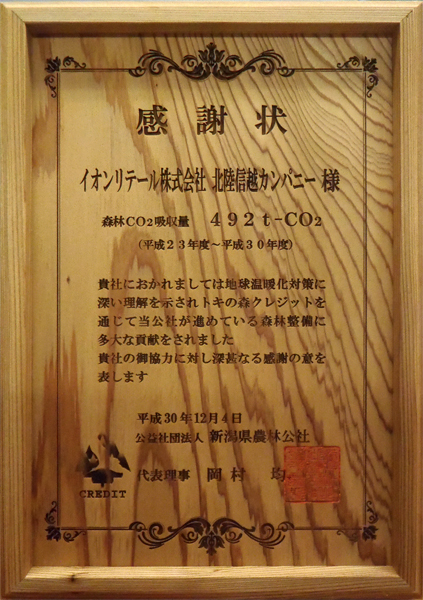 感謝状
イオンリテール株式会社 北陸信越カンパニー 様
森林CO₂吸収量 492t-CO₂
(平成23年度～平成30年度)
貴社におかれましては地球温暖化対策に
深い理解を示されトキの森クレジットを
通じて当公社が進めている森林整備に
多大な貢献をされました
貴社の御協力に対し深甚なる感謝の意を
表します
平成30年12月4日
公益社団法人 新潟県農林公社
代表理事 岡村 均
CREDIT